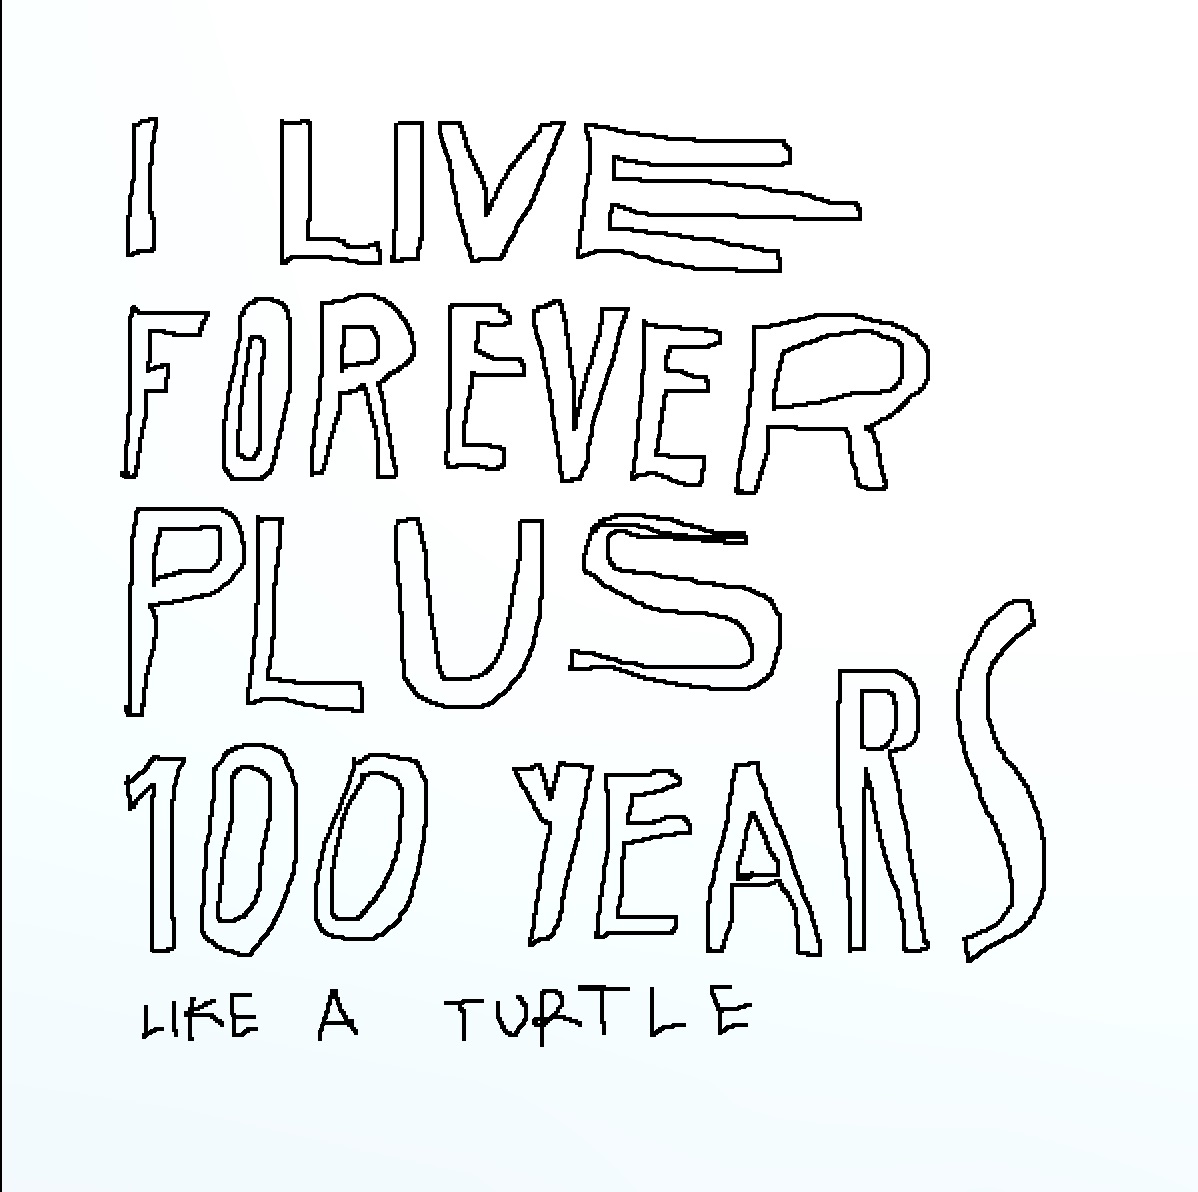 I LIVE
FOREVER
PLUS
100 YEARS
LIKE A TURTLE